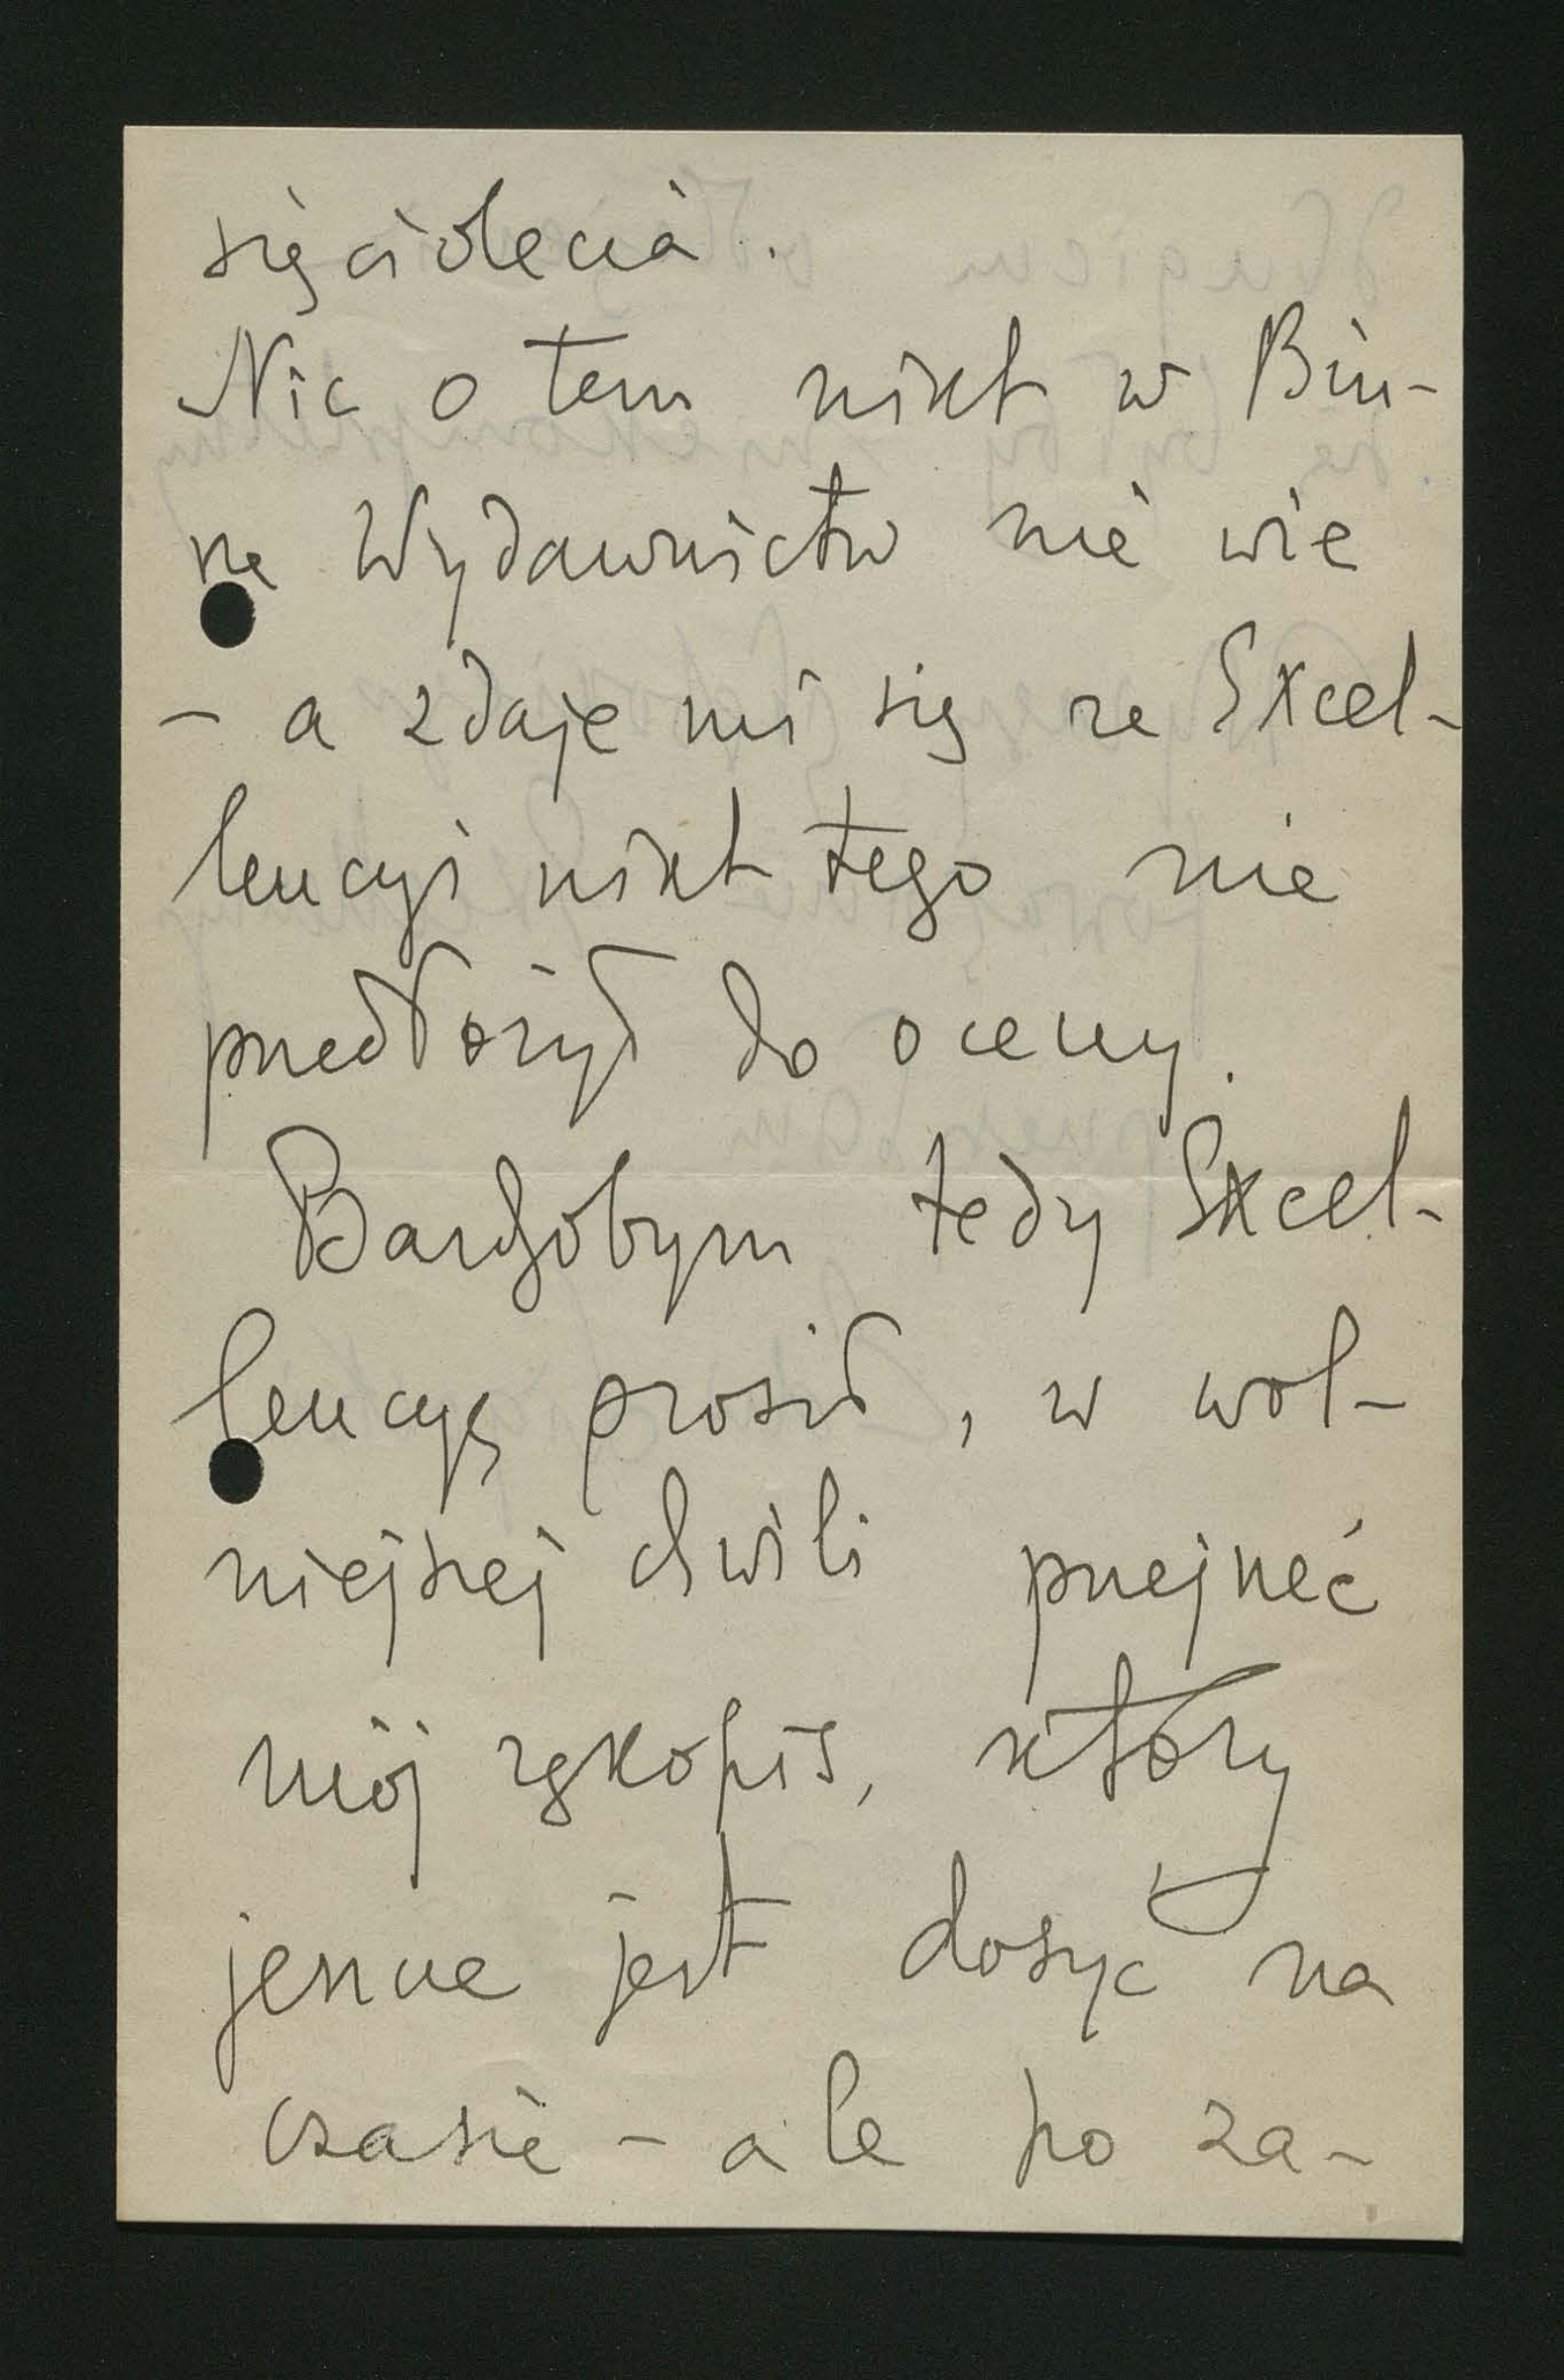 sięciolecia.
Nic o tem nikt w Biu-
rze Wydawnictw nie wie
– a zdaje mi się że Excel-
lencyi nikt tego nie
przedłożył do oceny.
Bardzobym tedy Excel-
lencyę prosił, w wol-
niejszej chwili przejrzeć
mój rękopis, który
jeszcze jest dosyć na
czasie – ale po za-